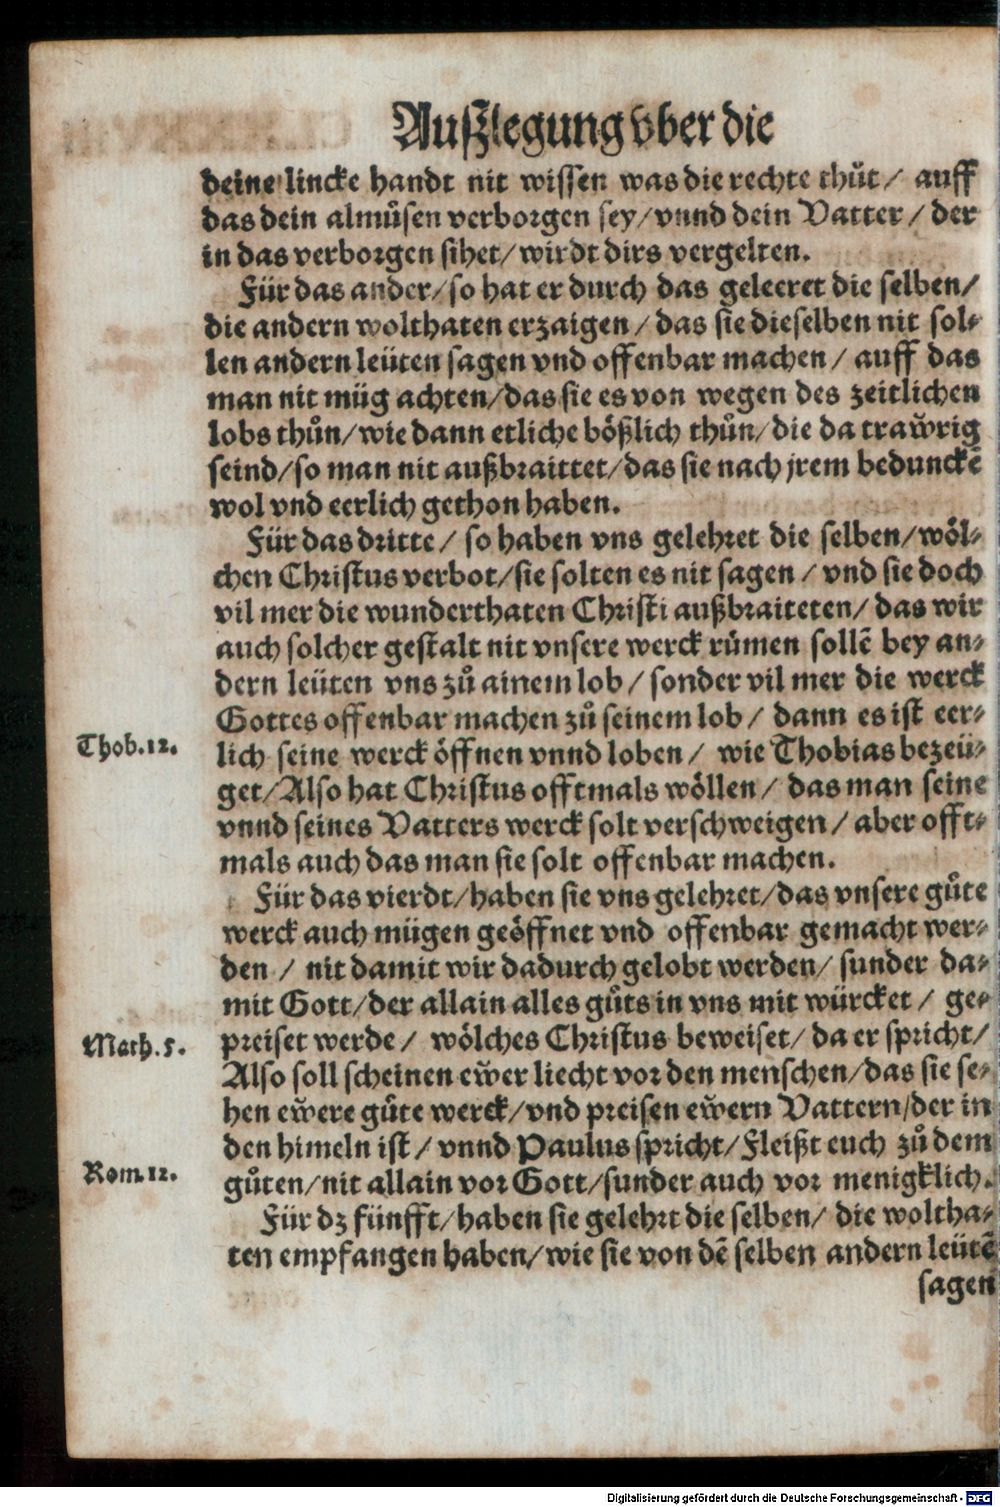 Außlegung vber die
deine lincke handt nit wissen was die rechte thůt / auff
das dein almůsen verborgen sey / vnnd dein Vatter / der
in das verborgen sihet / wirdt dirs vergelten.
Für das ander / so hat er durch das geleeret die selben /
die andern wolthaten erzaigen / das sie dieselben nit sol-
len andern leüten sagen vnd offenbar machen / auff das
man nit müg achten / das sie es von wegen des zeitlichen
lobs thůn / wie dann etliche bößlich thůn / die da traẘrig
seind / so man nit außbraittet / das sie nach jrem bedunckē
wol vnd eerlich gethon haben.
Für das dritte / so haben vns gelehret die selben / wöl-
chen Christus verbot / sie solten es nit sagen / vnd sie doch
vil mer die wunderthaten Christi außbraiteten / das wir
auch solcher gestalt nit vnsere werck růmen sollē bey an-
dern leüten vns zů ainem lob / sonder vil mer die werck
Gottes offenbar machen zů seinem lob / dann es ist eer-
Thob. 12.
lich seine werck öffnen vnnd loben / wie Thobias bezeü-
get / Also hat Christus offtmals wöllen / das man seine
vnnd seines Vatters werck solt verschweigen / aber offt-
mals auch das man sie solt offenbar machen.
Für das vierdt / haben sie vns gelehret / das vnsere gůte
werck auch mügen geöffnet vnd offenbar gemacht wer-
den / nit damit wir dadurch gelobt werden / sunder da-
mit Gott / der allain alles gůts in vns mit würcket / ge-
Math. 5.
preiset werde / wölches Christus beweiset / da er spricht /
Also soll scheinen eẘer liecht vor den menschen / das sie se-
hen eẘere gůte werck / vnd preisen eẘern Vattern / der in
den himeln ist / vnnd Paulus spricht / Fleißt euch zů dem
Rom. 12.
gůten / nit allain vor Gott / sunder auch vor menigklich.
Für dz fünfft / haben sie gelehrt die selben / die woltha-
ten empfangen haben / wie sie von dē selben andern leütē
sagen
Digitalisierung gefördert durch die Deutsche Forschungsgemeinschaft - DFG